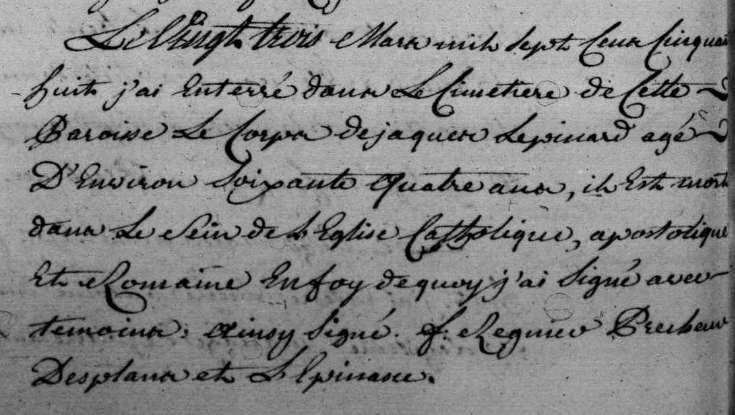 Le Vingt trois Mars mil Sept Cens Cinquan
huit j'ai Enterré dans Le Cimetiere de Cette
Paroisse Le Corps de jaques Lepinard agé
D'Environ Soixante quatre ans, il Est mort
dans Le Sein de L'Eglise Catholique, apostolique
Et Romaine En foy de quoy j'ai Signé avec
temoins: ainsy Signé. f. Regnier
Desplans et